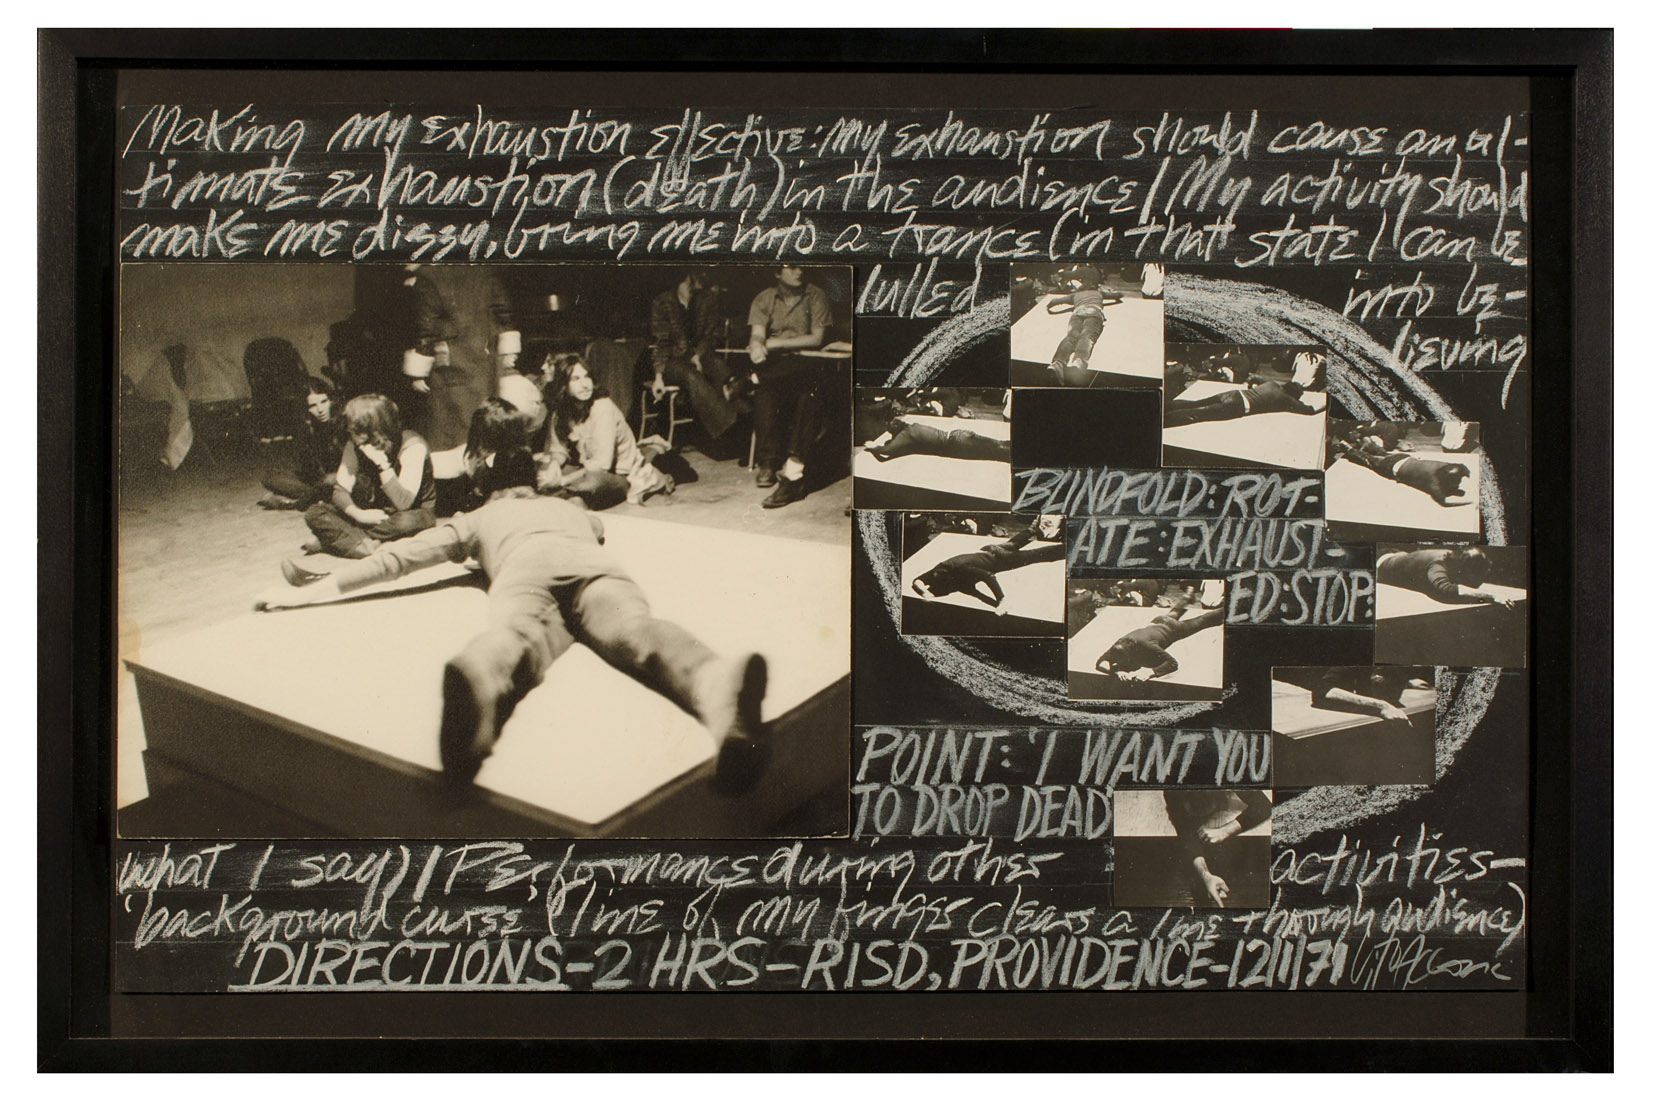 Making my exhaustion effective: my exhaustion should cause an ul-
timate exhaustion (death) in the audience / My activity should
make me dizzy, bring me into a trance (in that state I can be
lulled into be-
lieving
BLINDFOLD: ROT-
ATE: EXHAUST-
ED: STOP:
POINT: 'I WANT YOU
TO DROP DEAD'
what I say) / Performance during other activities–
'background curse' (line of my finger clears a line through audience)
DIRECTIONS–2 HRS–RISD, PROVIDENCE–12/1/71 Vito Acconci